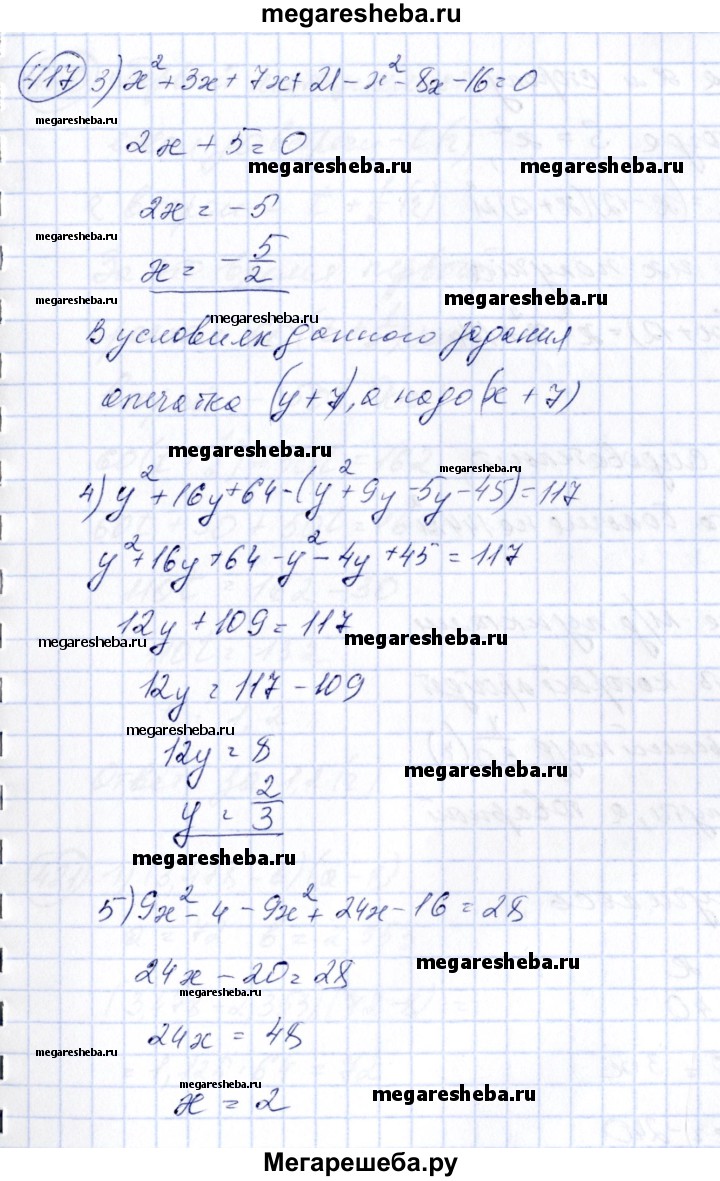 megaresheba.ru
417 3) x² + 3x + 7x + 21 - x² - 8x - 16 = 0
megaresheba.ru
2x + 5 = 0
megaresheba.ru megaresheba.ru
2x = -5
megaresheba.ru
x = - 5/2
megaresheba.ru megaresheba.ru
megaresheba.ru
В условиях данного задания
опечатка (y + 7), а надо (x + 7)
megaresheba.ru
megaresheba.ru
4) y² + 16y + 64 - (y² + 9y - 5y - 45) = 117
y² + 16y + 64 - y² - 4y + 45 = 117
12y + 109 = 117
megaresheba.ru megaresheba.ru
12y = 117 - 109
megaresheba.ru
12y = 8
megaresheba.ru
y = 2/3
megaresheba.ru
5) 9x² - 4 - 9x² + 24x - 16 = 28
24x - 20 = 28
megaresheba.ru
megaresheba.ru
24x = 48
megaresheba.ru
megaresheba.ru
x = 2
megaresheba.ru
Мегарешеба.ру